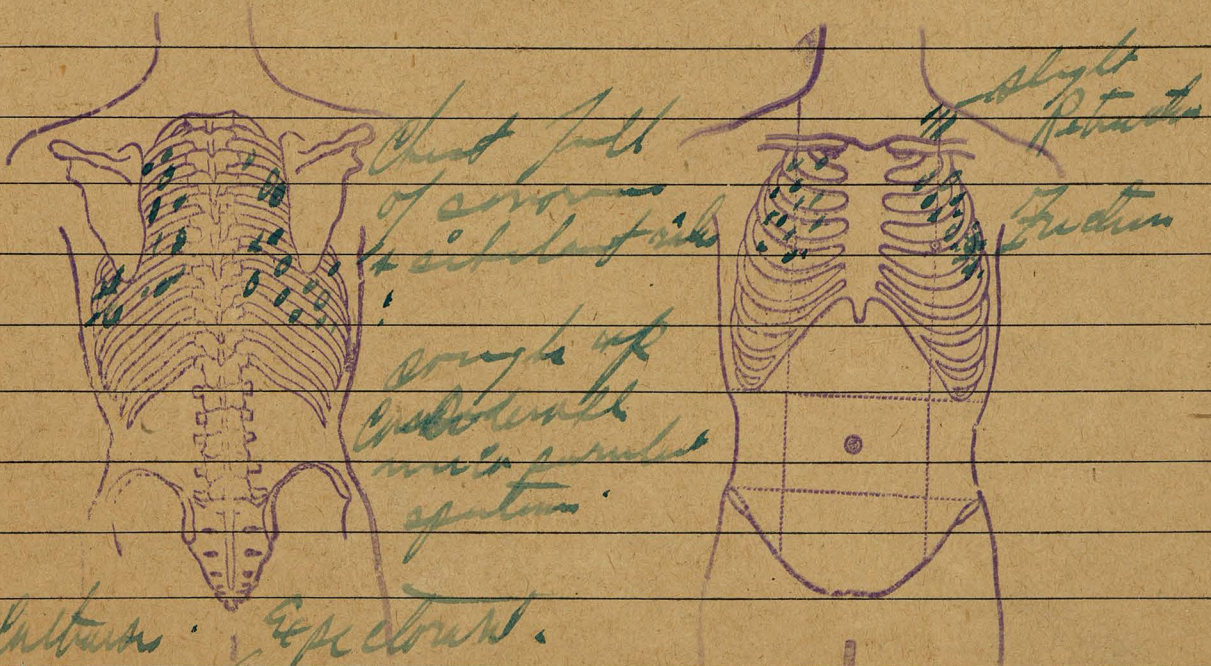 Chest full
of sonorous
+ sibilant râles
cough up
Considerable
muco purulent
sputum.
slight
Retraction
Friction
Expectorant.